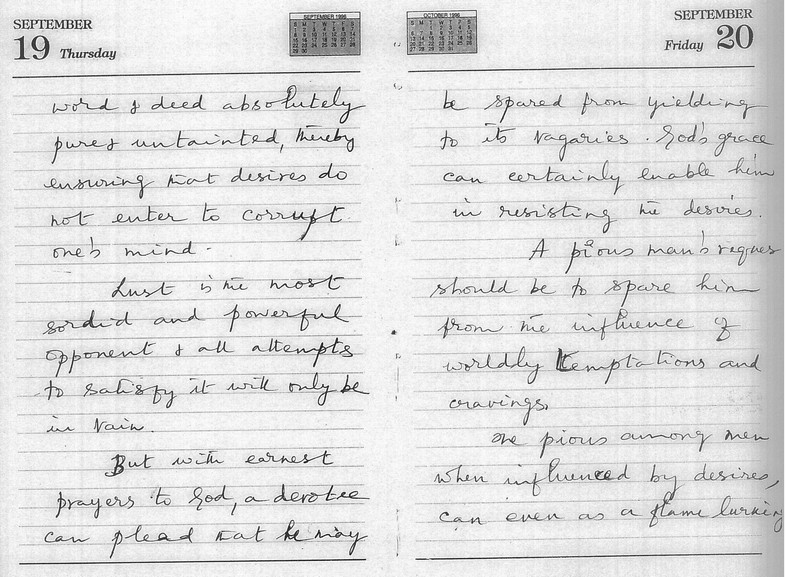 SEPTEMBER
19 Thursday
SEPTEMBER 1996
word & deed absolutely
pure & untainted, thereby
ensuring that desires do
not enter to corrupt
one's mind.
Lust is the most
sordid and powerful
opponent & all attempts
to satisfy it will only be
in vain.
But with earnest
prayers to God, a devotee
can plead that he may
OCTOBER 1996
SEPTEMBER
Friday 20
be spared from yielding
to its vagaries. God's grace
can certainly enable him
in resisting the desires.
A pious man's
should be to spare him
from the influence of
worldly temptations and
cravings.
The pious among men
when influenced by desires,
can even as a flame lurking